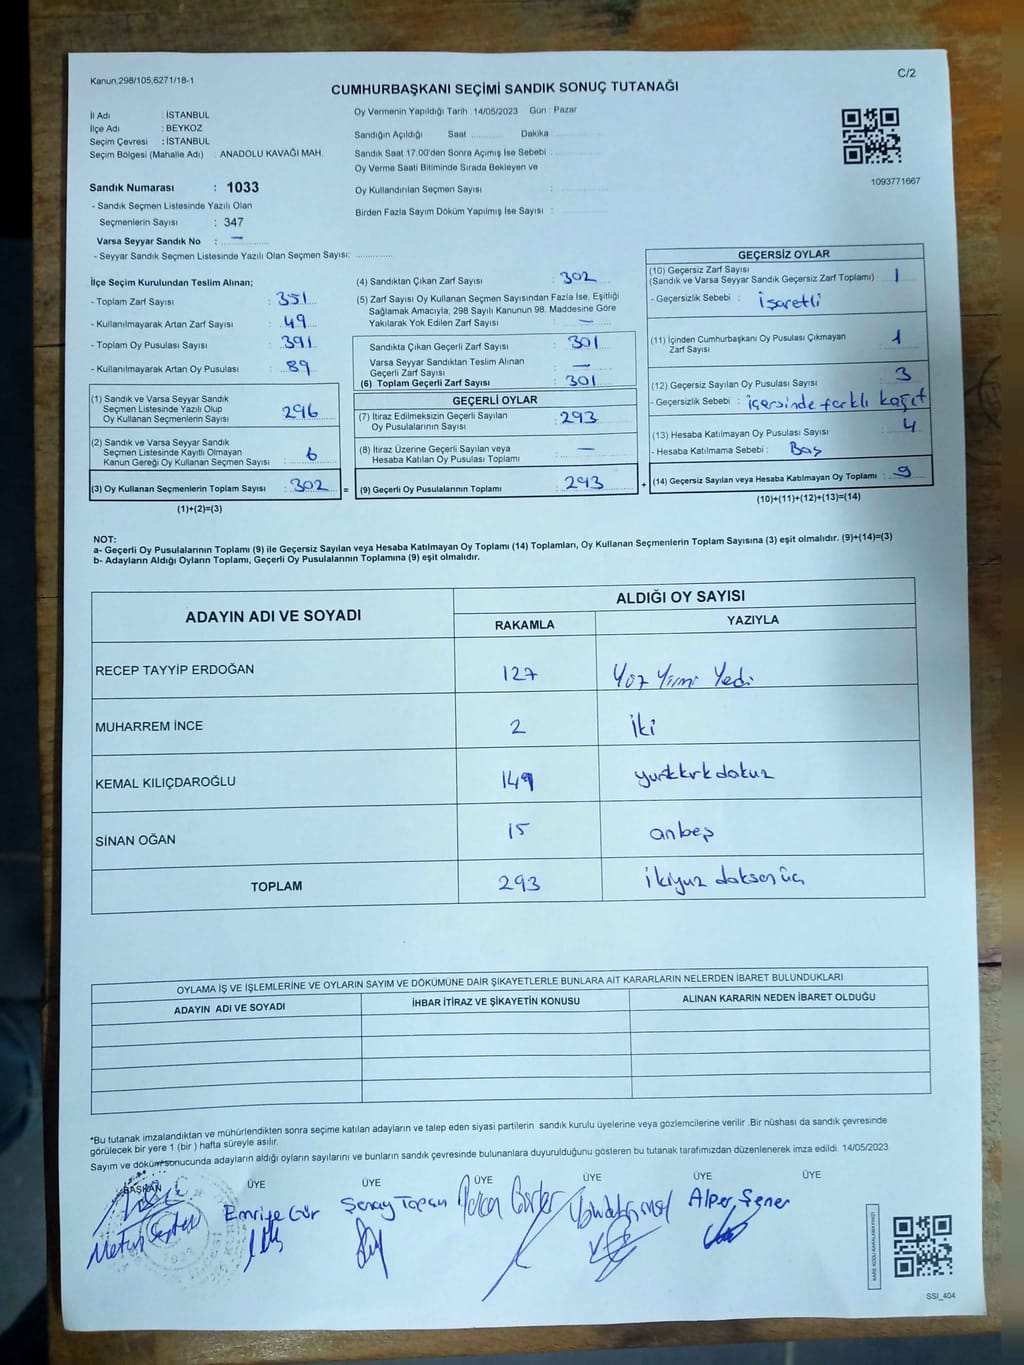 Kanun:298/105,6271/18-1
C/2
CUMHURBAŞKANI SEÇİMİ SANDIK SONUÇ TUTANAĞI
İl Adı : İSTANBUL
İlçe Adı : BEYKOZ
Seçim Çevresi : İSTANBUL
Seçim Bölgesi (Mahalle Adı) : ANADOLU KAVAĞI MAH.
Sandık Numarası : 1033
- Sandık Seçmen Listesinde Yazılı Olan
Seçmenlerin Sayısı : 347
Varsa Seyyar Sandık No : —
- Seyyar Sandık Seçmen Listesinde Yazılı Olan Seçmen Sayısı:
Oy Vermenin Yapıldığı Tarih : 14/05/2023 Gün : Pazar
Sandığın Açıldığı Saat Dakika
Sandık Saat 17:00'den Sonra Açımış İse Sebebi :
Oy Verme Saati Bitiminde Sırada Bekleyen ve
Oy Kullandırılan Seçmen Sayısı :
Birden Fazla Sayım Döküm Yapılmış İse Sayısı :
1093771667
İlçe Seçim Kurulundan Teslim Alınan;
- Toplam Zarf Sayısı : 351
- Kullanılmayarak Artan Zarf Sayısı : 49
- Toplam Oy Pusulası Sayısı : 391
- Kullanılmayarak Artan Oy Pusulası : 89
(1) Sandık ve Varsa Seyyar Sandık
Seçmen Listesinde Yazılı Olup
Oy Kullanan Seçmenlerin Sayısı : 296
(2) Sandık ve Varsa Seyyar Sandık
Seçmen Listesinde Kayıtlı Olmayan
Kanun Gereği Oy Kullanan Seçmen Sayısı : 6
(3) Oy Kullanan Seçmenlerin Toplam Sayısı : 302 =
(1)+(2)=(3)
(4) Sandıktan Çıkan Zarf Sayısı : 302
(5) Zarf Sayısı Oy Kullanan Seçmen Sayısından Fazla İse, Eşitliği
Sağlamak Amacıyla; 298 Sayılı Kanunun 98. Maddesine Göre
Yakılarak Yok Edilen Zarf Sayısı : —
Sandıkta Çıkan Geçerli Zarf Sayısı : 301
Varsa Seyyar Sandıktan Teslim Alınan
Geçerli Zarf Sayısı : —
(6) Toplam Geçerli Zarf Sayısı : 301
GEÇERLİ OYLAR
(7) İtiraz Edilmeksizin Geçerli Sayılan
Oy Pusulalarının Sayısı : 293
(8) İtiraz Üzerine Geçerli Sayılan veya
Hesaba Katılan Oy Pusulası Toplamı : —
(9) Geçerli Oy Pusulalarının Toplamı : 293 +
GEÇERSİZ OYLAR
(10) Geçersiz Zarf Sayısı
(Sandık ve Varsa Seyyar Sandık Geçersiz Zarf Toplamı) : 1
- Geçersizlik Sebebi : İşaretli
(11) İçinden Cumhurbaşkanı Oy Pusulası Çıkmayan
Zarf Sayısı : 1
(12) Geçersiz Sayılan Oy Pusulası Sayısı : 3
- Geçersizlik Sebebi : içersinde farklı kağıt
(13) Hesaba Katılmayan Oy Pusulası Sayısı : 4
- Hesaba Katılmama Sebebi : Boş
(14) Geçersiz Sayılan veya Hesaba Katılmayan Oy Toplamı : 9
(10)+(11)+(12)+(13)=(14)
NOT:
a- Geçerli Oy Pusulalarının Toplamı (9) ile Geçersiz Sayılan veya Hesaba Katılmayan Oy Toplamı (14) Toplamları, Oy Kullanan Seçmenlerin Toplam Sayısına (3) eşit olmalıdır. (9)+(14)=(3)
b- Adayların Aldığı Oyların Toplamı, Geçerli Oy Pusulalarının Toplamına (9) eşit olmalıdır.
ADAYIN ADI VE SOYADI
ALDIĞI OY SAYISI
RAKAMLA YAZIYLA
RECEP TAYYİP ERDOĞAN 127 Yüz Yirmi Yedi
MUHARREM İNCE 2 iki
KEMAL KILIÇDAROĞLU 149 yuzkırkdokuz
SİNAN OĞAN 15 onbeş
TOPLAM 293 ikiyuz doksan üç
OYLAMA İŞ VE İŞLEMLERİNE VE OYLARIN SAYIM VE DÖKÜMÜNE DAİR ŞİKAYETLERLE BUNLARA AİT KARARLARIN NELERDEN İBARET BULUNDUKLARI
ADAYIN ADI VE SOYADI İHBAR İTİRAZ VE ŞİKAYETİN KONUSU ALINAN KARARIN NEDEN İBARET OLDUĞU
*Bu tutanak imzalandıktan ve mühürlendikten sonra seçime katılan adayların ve talep eden siyasi partilerin sandık kurulu üyelerine veya gözlemcilerine verilir .Bir nüshası da sandık çevresinde
görülecek bir yere 1 (bir ) hafta süreyle asılır.
Sayım ve döküm sonucunda adayların aldığı oyların sayılarını ve bunların sandık çevresinde bulunanlara duyurulduğunu gösteren bu tutanak tarafımızdan düzenlenerek imza edildi. 14/05/2023
BAŞKAN ÜYE ÜYE ÜYE ÜYE ÜYE ÜYE
Emriye Gür Şenay Topçu Alper Şener
KARE KODU KARALAMAYINIZ!
SSI_404